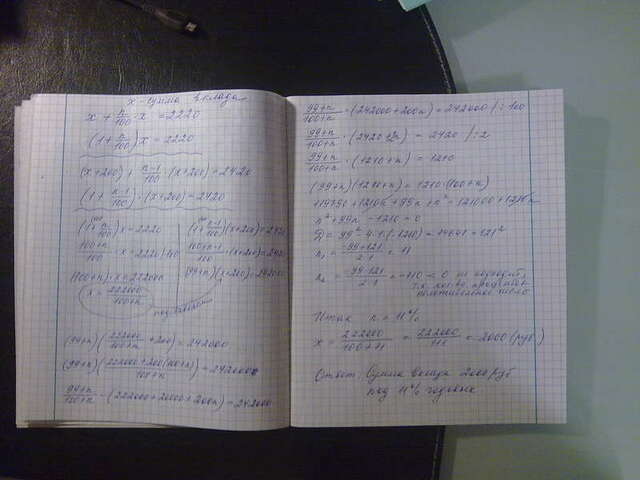 x - сумма вклада
x + n/100 · x = 2220
(1 + n/100) x = 2220
(x+200) + n-1/100 · (x+200) = 2420
(1 + n-1/100) · (x+200) = 2420
(1 + n/100) x = 2220
100+n/100 · x = 2220 | ·100
(100+n) · x = 222000
x = 222000/100+n
(1 + n-1/100)(x+200) = 2420
100+n-1/100 · (x+200) = 2420
(99+n)(x+200) = 242000
подставляем
(99+n)(222000/100+n + 200) = 242000
(99+n)(222000+200(100+n)/100+n) = 242000
99+n/100+n · (222000 + 20000 + 200n) = 242000
99+n/100+n · (242000 + 200n) = 242000 / : 100
99+n/100+n · (2420 + 2n) = 2420 / : 2
99+n/100+n · (1210 + n) = 1210
(99+n)(1210+n) = 1210 · (100+n)
119790 + 1210n + 99n + n² = 121000 + 1210n
n² + 99n - 1210 = 0
D = 99² - 4 · 1 · (-1210) = 14641 = 121²
n₁ = -99+121/2·1 = 11
n₂ = -99-121/2·1 = -110 < 0 не подходит,
т.к. кол-во процентов
положительное число
Итак n = 11%
x = 222000/100+11 = 222000/111 = 2000 (руб)
Ответ: Сумма вклада 2000 руб
под 11% годовых